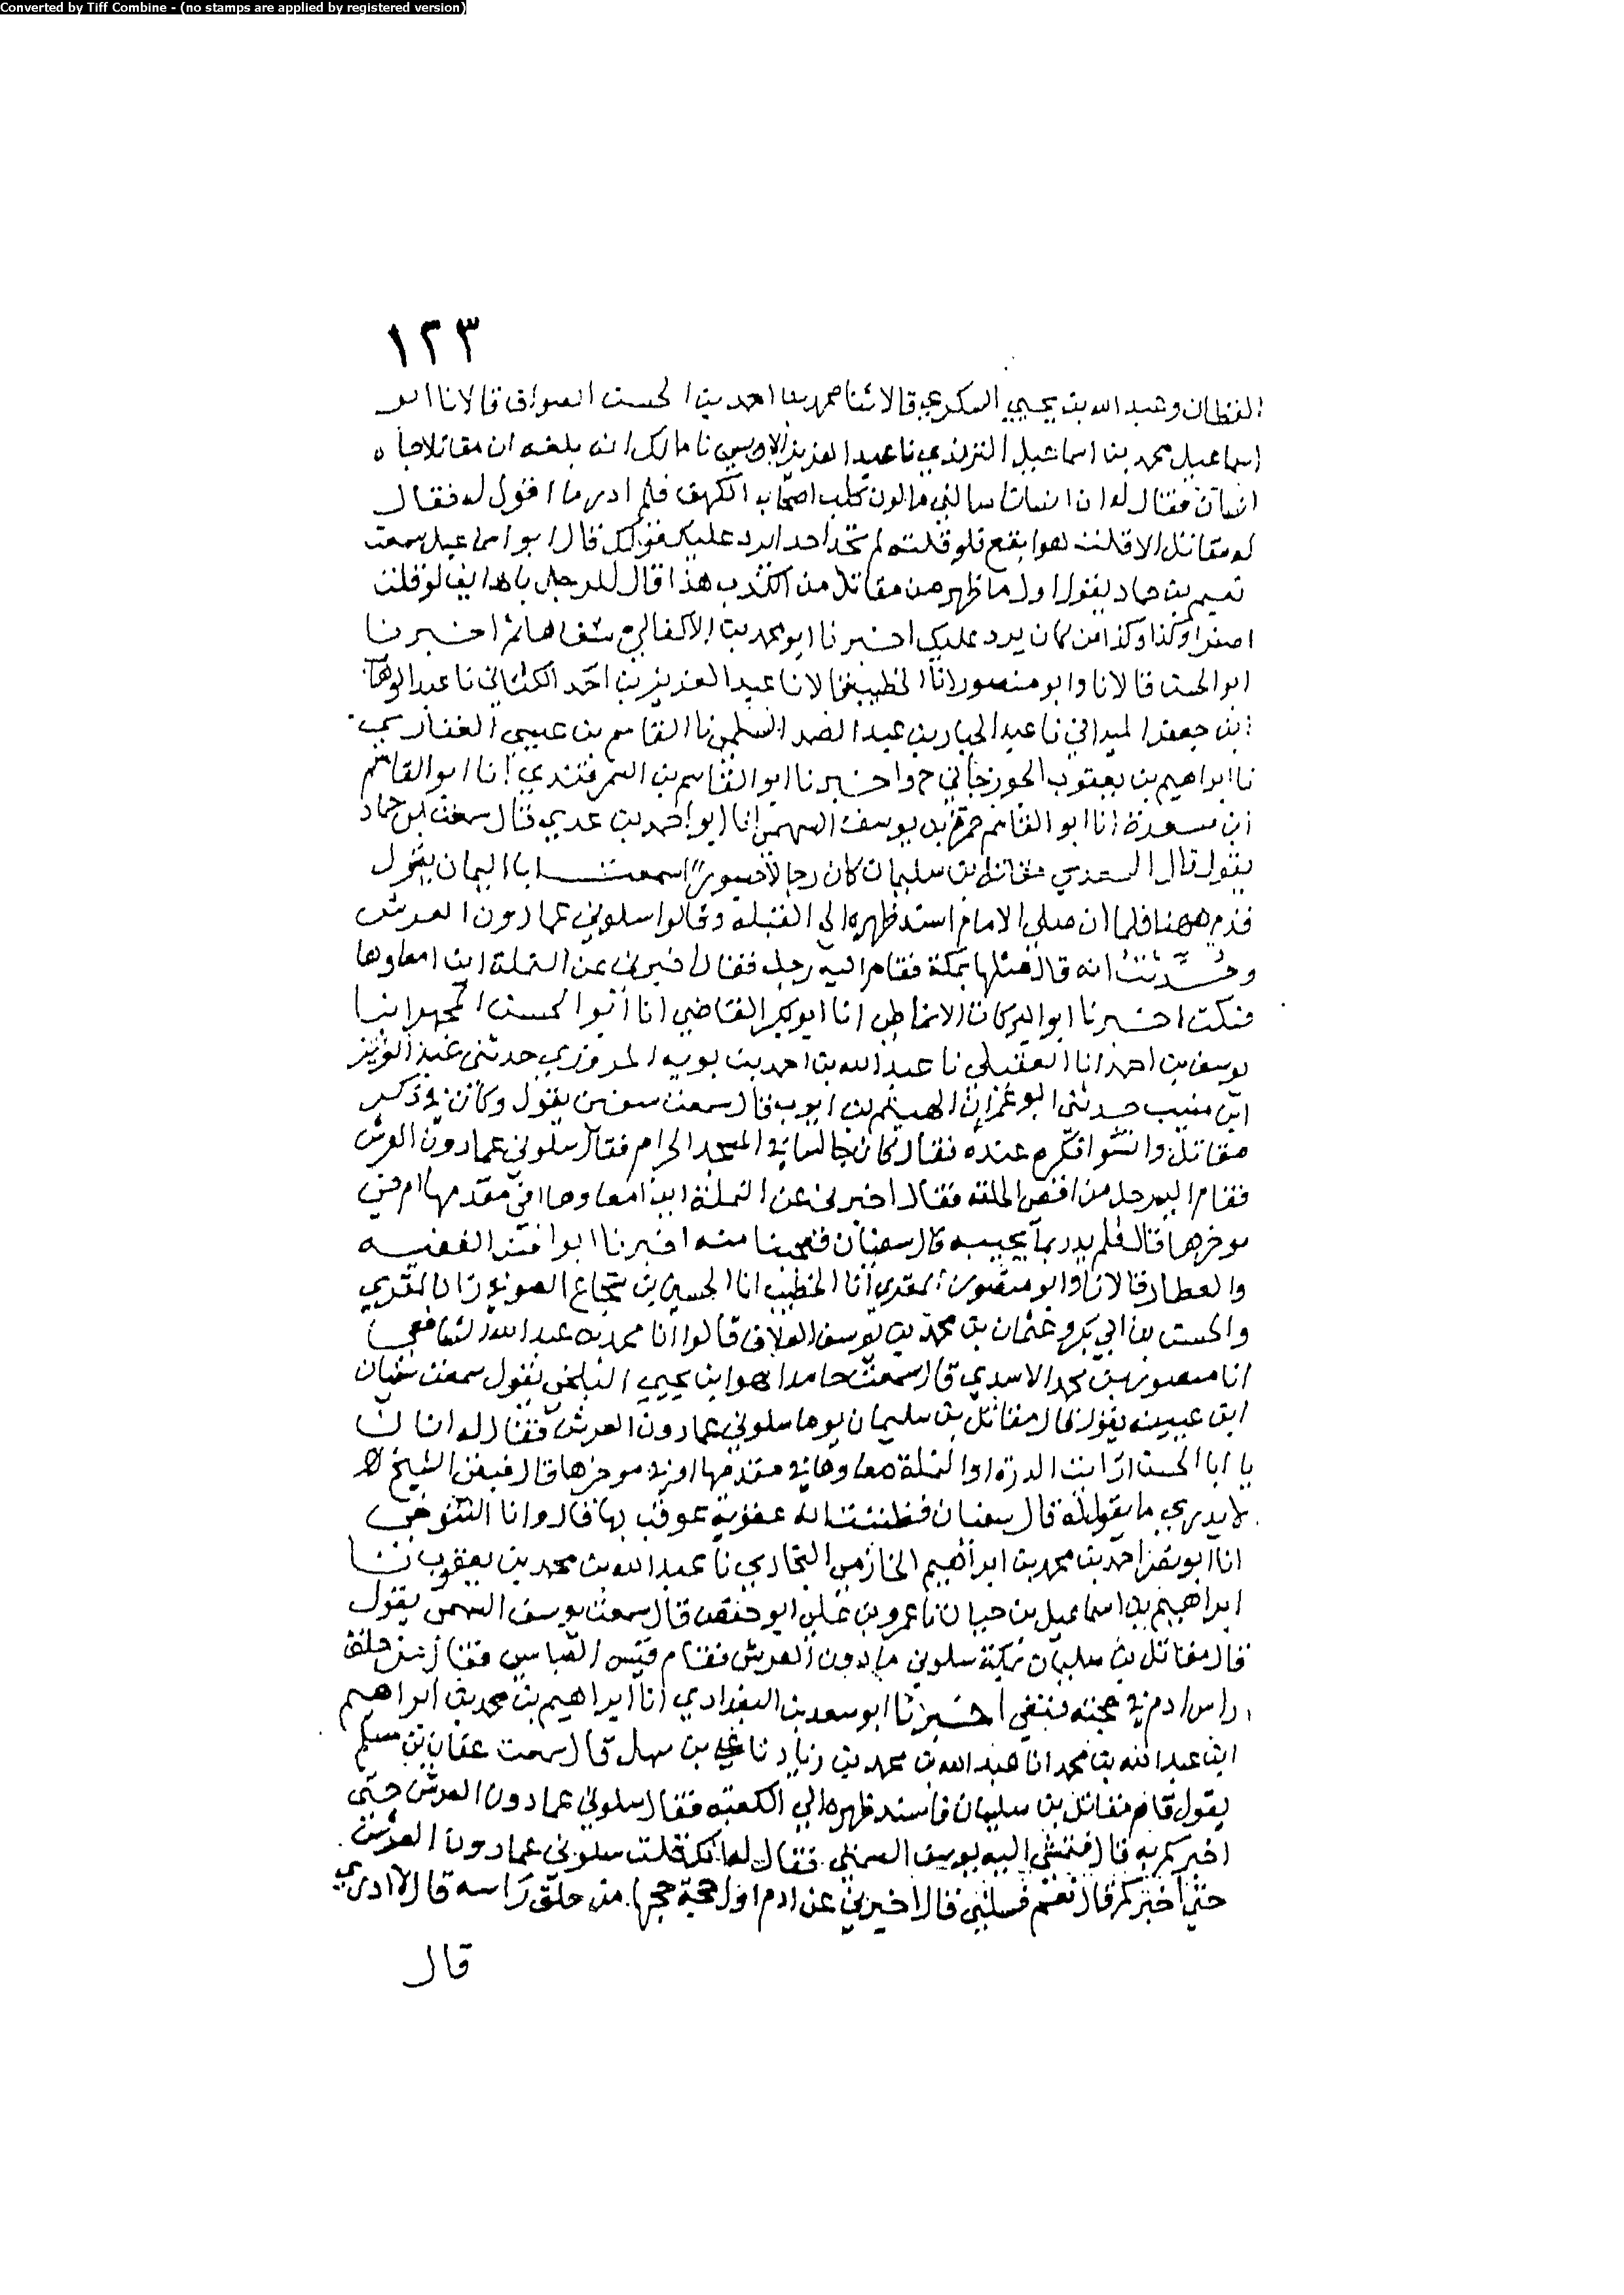 Converted by Tiff Combine - (no stamps are applied by registered version)
١٢٣
القطان وعبد الله بن يحيي السكري قالا ثنا محمد بن احمد بن الحسن الصواف قالا نا ابو
اسماعيل محمد بن اسماعيل الترمذي نا عبد العزيز الاويسي نا مالك انه بلغه ان مقاتلا جاه
انسان فقال له ان انسانا سالني ما لون كلب اصحاب الكهف فلم ادر ما اقول له فقال
له مقاتل الا قلت هو ابقع فلو قلته لم تجد احدا يرد عليك قولك قال ابو اسماعيل سمعت
نعيم بن حماد يقول اول ما ظهر من مقاتل من الكذب هذا قال للرجل يا هذا لو قلت
اصفر او كذا وكذا من كان يرد عليك اخبرنا ابو محمد بن الاكفاني شفاها نا اخبرنا
ابو الحسن قالا نا وابو منصور انا الخطيب قالا نا عبد العزيز بن احمد الكتاني نا عبد الوهاب
ابن جعفر الميداني نا عبد الجبار بن عبد الصمد السلمي نا القاسم بن عيسي العصار
نا ابراهيم بن يعقوب الجوزجاني ح واخبرنا ابو القاسم بن السمرقندي انا ابو القاسم
ابن مسعدة انا ابو القاسم حمزة بن يوسف السهمي انا ابو احمد بن عدي قال سمعت ابن حماد
يقول قال السعدي مقاتل بن سليمان كان رجالا جسورا سمعت ابا اليمان يقول
قدم ههنا فلما ان صلي الامام اسند ظهره الي القبلة وقالوا سلوني عما دون العرش
وحُدّثت انه قال مثلها بمكة فقام اليه رجل فقال اخبرني عن النملة اين امعاوها
فسكت اخبرنا ابو البركات الانماطي انا ابو بكر القاضي انا ابو الحسن المجهز انا
يوسف بن احمد انا العقيلي نا عبد الله بن احمد بن بويه المروزي حدثني عبد العزيز
ابن منيب حدثني ابو عمران الهيثم بن ايوب قال سمعت سفين يقول وكان في ذكر
مقاتل عنده فقال كان جالسا في المسجد الحرام فقال سلوني عما دون العرش
فقام اليه رجل من اقصى الحلقة فقال اخبرني عن النملة اين امعاوها افي مقدمها ام في
موخرها قال فلم يدر بما يجيبه قال سفيان فعجبنا منه اخبرنا ابو الفقيه
والعطار قالا نا وابو منصور المقري انا الخطيب انا الحسين بن شجاع الصوفي
والحسن بن ابي بكر وعثمان بن محمد بن يوسف العلاف قالوا انا محمد بن عبد الله الشافعي
انا منصور بن محمد الاسدي قال سمعت حامدا هو ابن يحيي البلخي يقول سمعت سفيان
ابن عيينه يقول قال مقاتل بن سليمان يوما سلوني عما دون العرش فقال له انسان
يا ابا الحسن ارايت الذرة او النملة معاوها في مقدمها او في موخرها قال فبقى الشيخ لا
لا يدري ما يقول له قال سفيان فظننت انه عقوبة عوقب بها قال وانا التنوخي
انا ابو نصر احمد بن محمد بن ابراهيم الخازمي البخاري نا عبد الله بن محمد بن يعقوب نا
ابراهيم بن اسماعيل بن حيان نا عمرو بن علي ابو حفص قال سمعت يوسف السمتي يقول
قال مقاتل بن سليمان بمكة سلوني ما دون العرش فقام قيس القياس فقال من حلق
راس ادم في حجته فبقي اخبرنا ابو سعد بن البغدادي انا ابراهيم بن محمد بن ابراهيم
ابن عبد الله بن محمد انا عبد الله بن محمد بن زياد نا علي بن سهل قال سمعت عفان بن مسلم
يقول قام مقاتل بن سليمان فاسند ظهره الي الكعبة فقال سلوني عما دون العرش حتى
اخبركم به قال فمشي اليه يوسف السمتي فقال له انك قلت سلوني عما دون العرش
حتي اخبركم قال نعم فسلني قال اخبرني عن ادم اول حجة حجها من حلق راسه قال لا ادري
قال